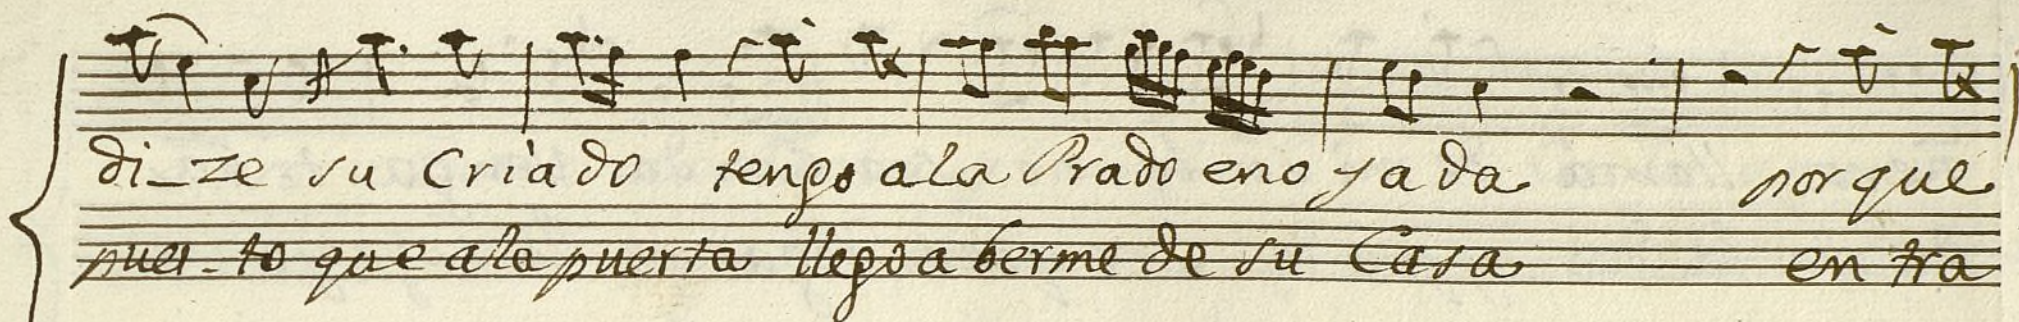 di-ze su Criado tengo a la Prado enoyada porque
pues-to que a la puerta llego a berme de su Casa entra